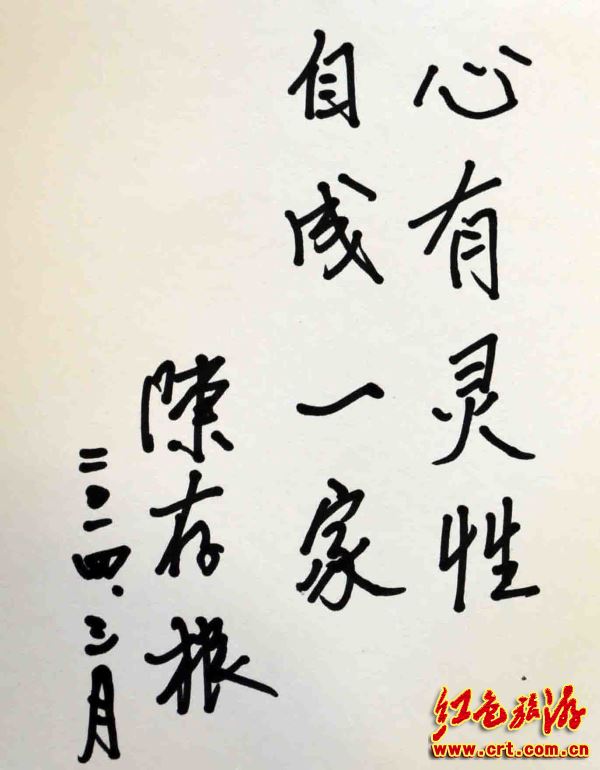 心有灵性
自成一家
陳存根
二〇一四、三月
红色旅游
www.crt.com.cn